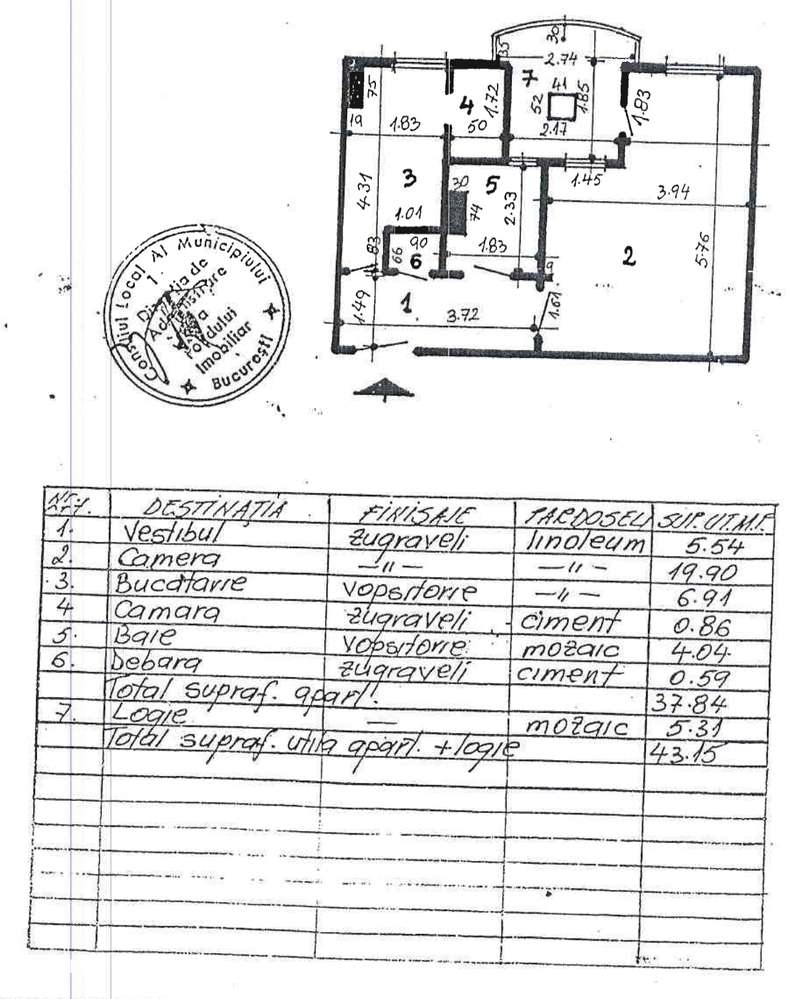 30
35
2.74
7
41
52
1.85
2.17
75
19
1.83
4
1.72
50
1.83
1.45
3.94
4.31
3
1.01
30
5
74
2.33
1.83
83
90
66
6
9
2
5.76
1.49
1
3.72
1.61
Consiliul Local Al Municipiului
București
1.
Imobiliar
NR.
DESTINAȚIA FINISAJE PARDOSELI SUP. UT. M.P.
1. Vestibul zugraveli linoleum 5.54
2. Camera —"— —"— 19.90
3. Bucătarie vopsitorie —"— 6.91
4 Camara zugraveli ciment 0.86
5. Baie vopsitorie mozaic 4.04
6. Debara zugraveli ciment 0.59
Total supraf. apart. 37.84
7. Logie — mozaic 5.31
Total supraf. utila apart. + logie 43.15